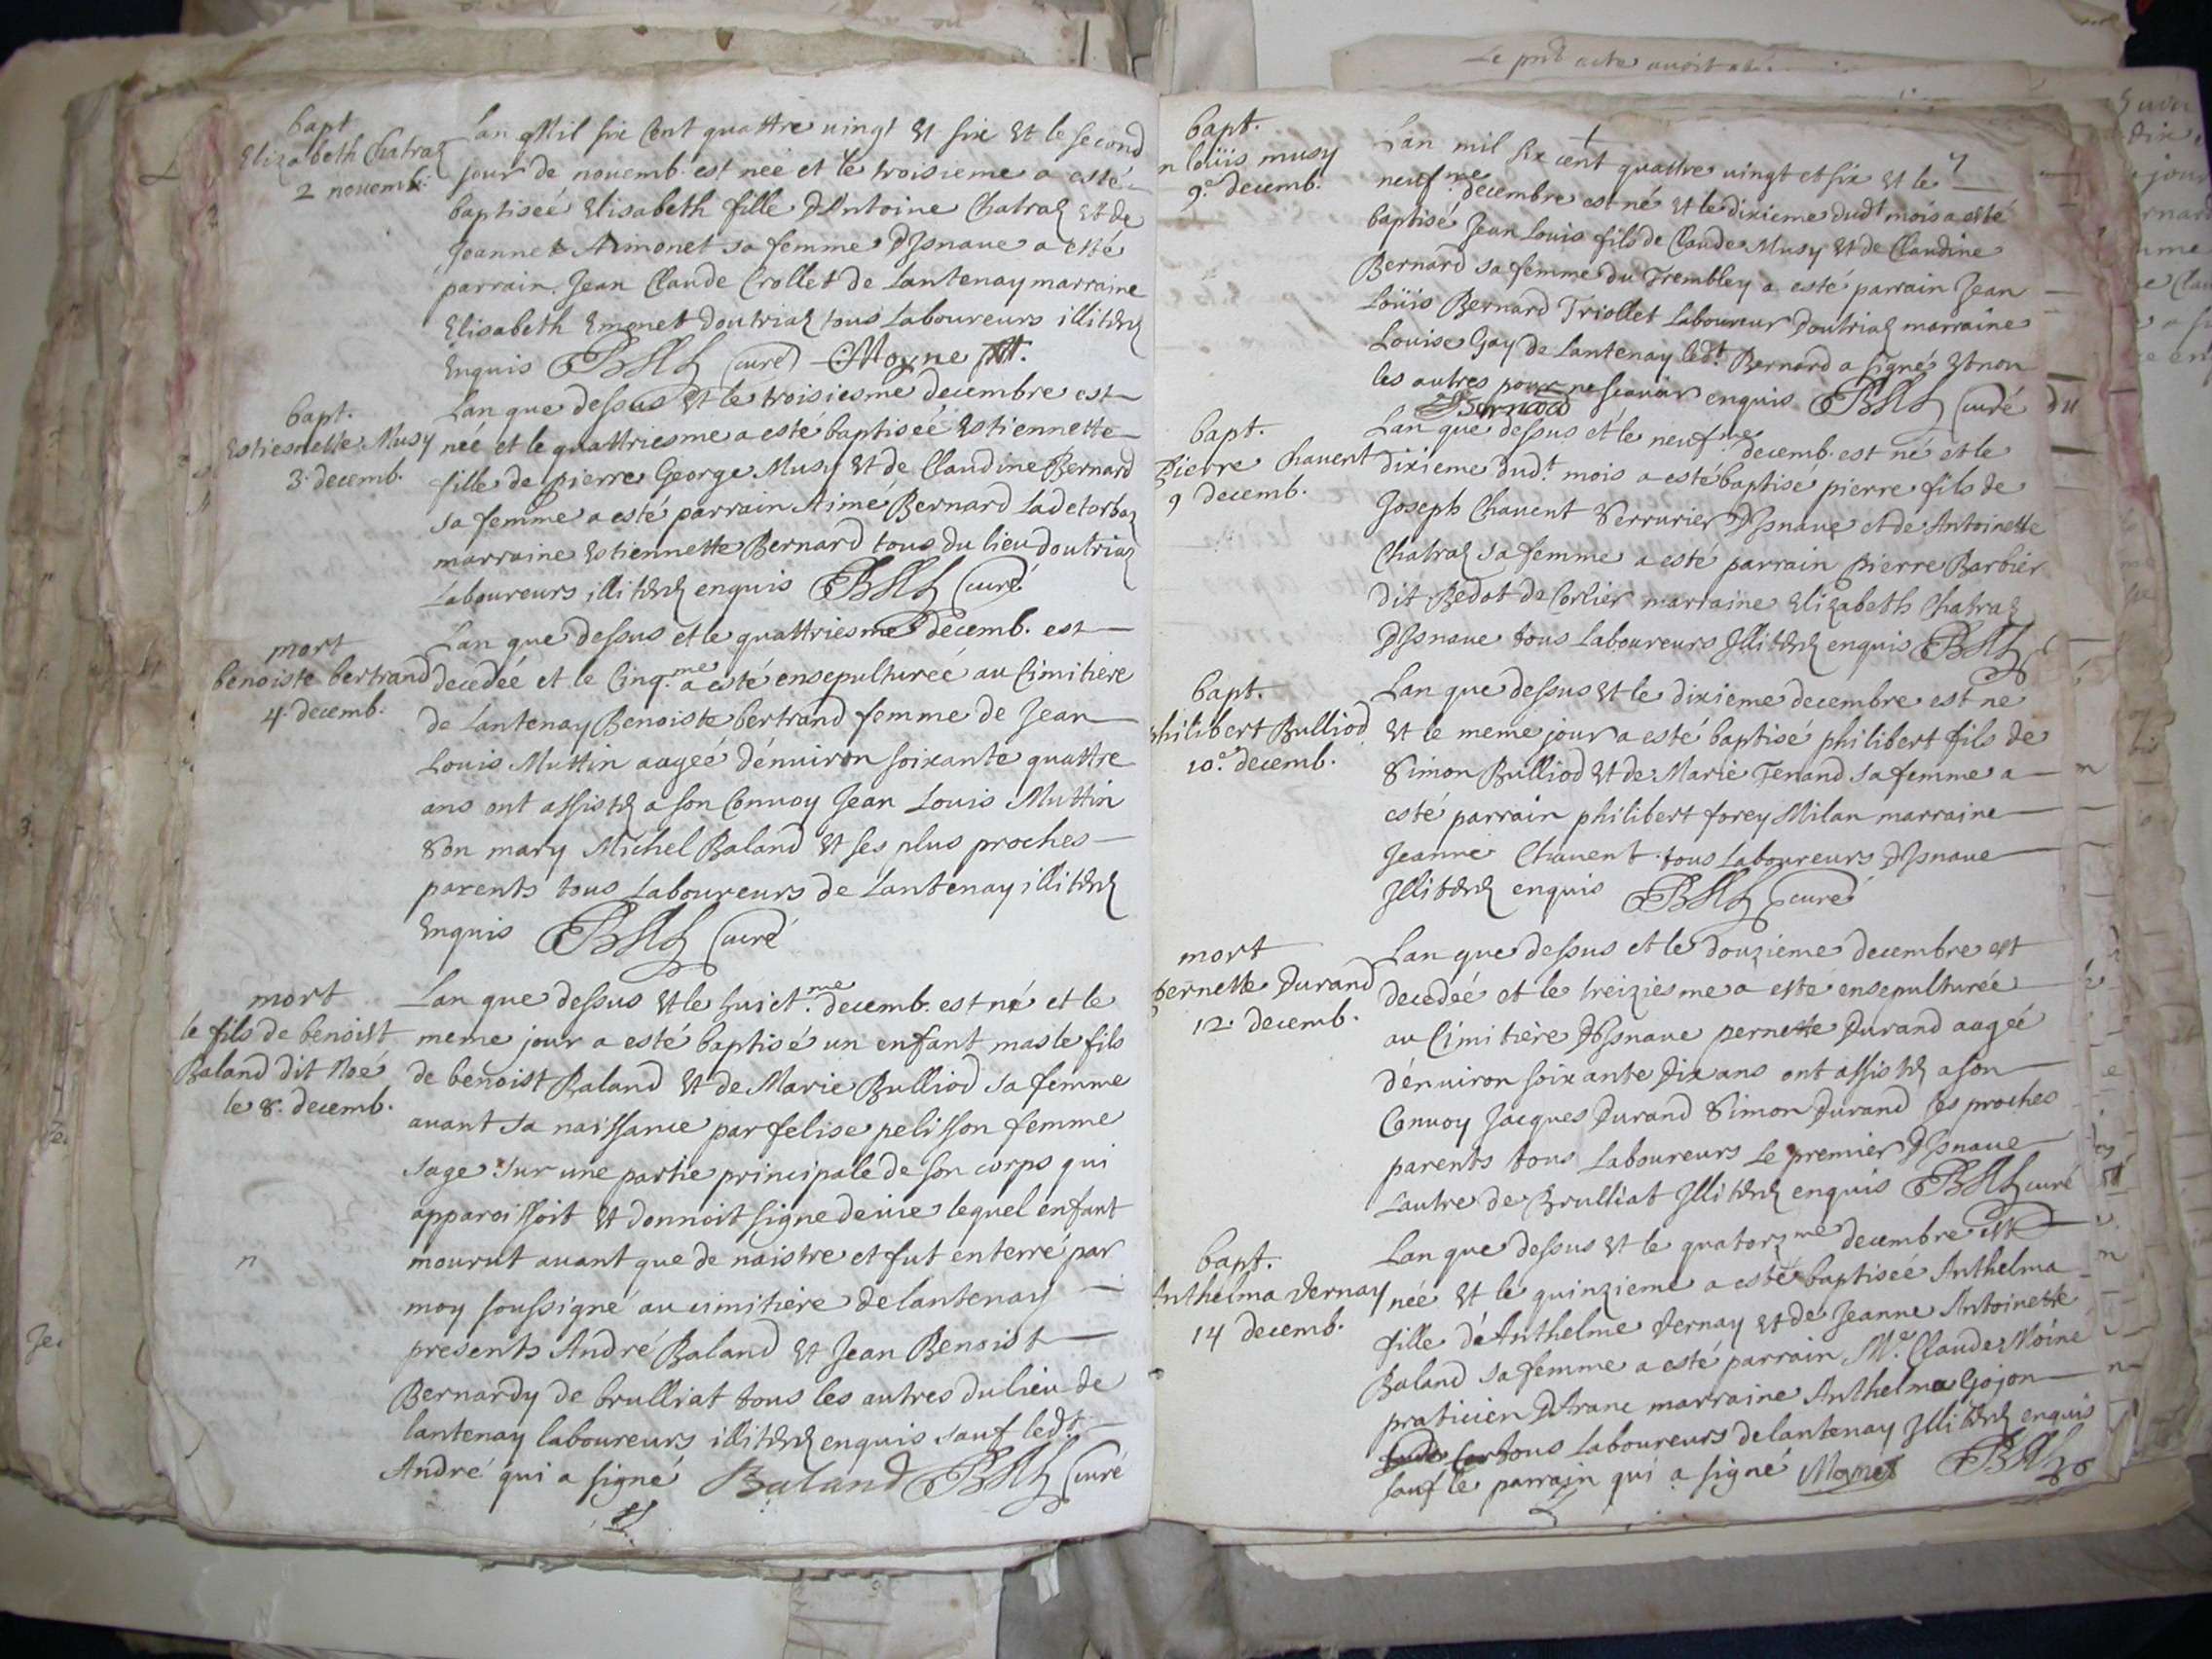 bapt
Elizabeth Chatraz
2 novemb.
Lan Mil six Cent quattre vingt Et six Et le second
jour de novemb. est neé et le troisieme a esté
baptiseé Elisabeth fille D'Antoine Chatraz Et de
Jeanne Aimonet sa femme D'Isnave a esté
parrain Jean Claude Crollet de Lantenay marraine
Elisabeth Emonet doutriaz tous Laboureurs illiterez
Enquis curé Moyne
bapt.
Estiennette Musy
3. decemb.
Lan que dessus Et le troisiesme decembre est
neé et le quattriesme a esté baptiseé Estiennette
fille de pierre George Musy Et de Claudine Bernard
sa femme a esté parrain Aimé Bernard Ladetorbaz
marraine Estiennette Bernard tous du lieu doutriaz
Laboureurs illiterez enquis curé
mort
benoiste bertrand
4. decemb.
Lan que dessus et le quattriesme decemb. est
decedeé et le Cinq.me a esté ensepultureé au Cimitiere
de Lantenay Benoiste bertrand femme de Jean
Louis Muttin aageé dénviron soixante quattre
ans ont assistez a son Convoy Jean Louis Muttin
son mary Michel Baland Et ses plus proches
parents tous Laboureurs de Lantenay illiterez
Enquis curé
mort
le fils de benoist
Baland dit Noé
le 8. decemb.
Lan que dessus Et le huict.me decemb. est né et le
meme jour a esté baptisé un enfant masle fils
de benoist Baland Et de Marie Bulliod sa femme
avant sa naissance par felise pelisson femme
sage sur une partie principale de son corps qui
apparoissoit Et donnoit signe de vie lequel enfant
mourut avant que de naistre et fut enterré par
moy soussigné au cimitiere de lantenay
presents André Baland Et Jean Benoist
Bernardy de brulliat tous les autres du lieu de
lantenay laboureurs illiterez enquis sauf ledt.
André qui a signé Baland curé
bapt.
n loüis musy
9.e decemb.
Lan mil six cent quattre vingt et six Et le
neuf.me decembre est né Et le dixieme dudt mois a esté
baptisé Jean Louis fils de Claude Musy Et de Claudine
Bernard sa femme du Trembley a esté parrain Jean
Loüis Bernard Triollet Laboureur doutriaz marraine
Louise Gay de Lantenay ledt. Bernard a signé Et non
les autres pour ne scavoir enquis curé
Bernard
bapt.
Pierre Chavent
9 decemb.
Lan que dessus et le neuf.me decemb. est né et le
dixieme dudt. mois a esté baptisé pierre fils de
Joseph Chavent Serrurier D'Isnave et de Antoinette
Chatraz sa femme a esté parrain pierre Barbier
dit Bedot de Corlier marraine Elizabeth Chatraz
D'Isnave tous Laboureurs Illiterez enquis
bapt.
philibert Bulliod
10.e decemb.
Lan que dessus Et le dixieme decembre est né
Et le meme jour a esté baptisé philibert fils de
Simon Bulliod Et de Marie Tenand sa femme a
esté parrain philibert forey Milan marraine
Jeanne Chavent tous Laboureurs D'Isnave
Illiterez enquis curé
mort
pernette Durand
12. decemb.
Lan que dessus et le douzieme decembre est
decedeé et le treiziesme a esté ensepultureé
au Cimitiere D'Isnave pernette Durand aageé
dénviron soixante Dix ans ont assistez a son
Convoy Jacques Durand Simon Durand ses proches
parents tous Laboureurs Le premier D'Isnave
Lautre de Brulliat Illiterez enquis curé
bapt.
Anthelma Vernay
14 decemb.
Lan que dessus Et le quatorzme decembre est
née Et le quinzieme a esté baptiseé Anthelma
fille dé Anthelme Vernay Et de Jeanne Antoinette
Baland sa femme a esté parrain M.e Claude Moine
praticien D'Aranc marraine Anthelma Gojon
tous Laboureurs de lantenay Illiterez enquis
sauf le parrain qui a signé Moyne